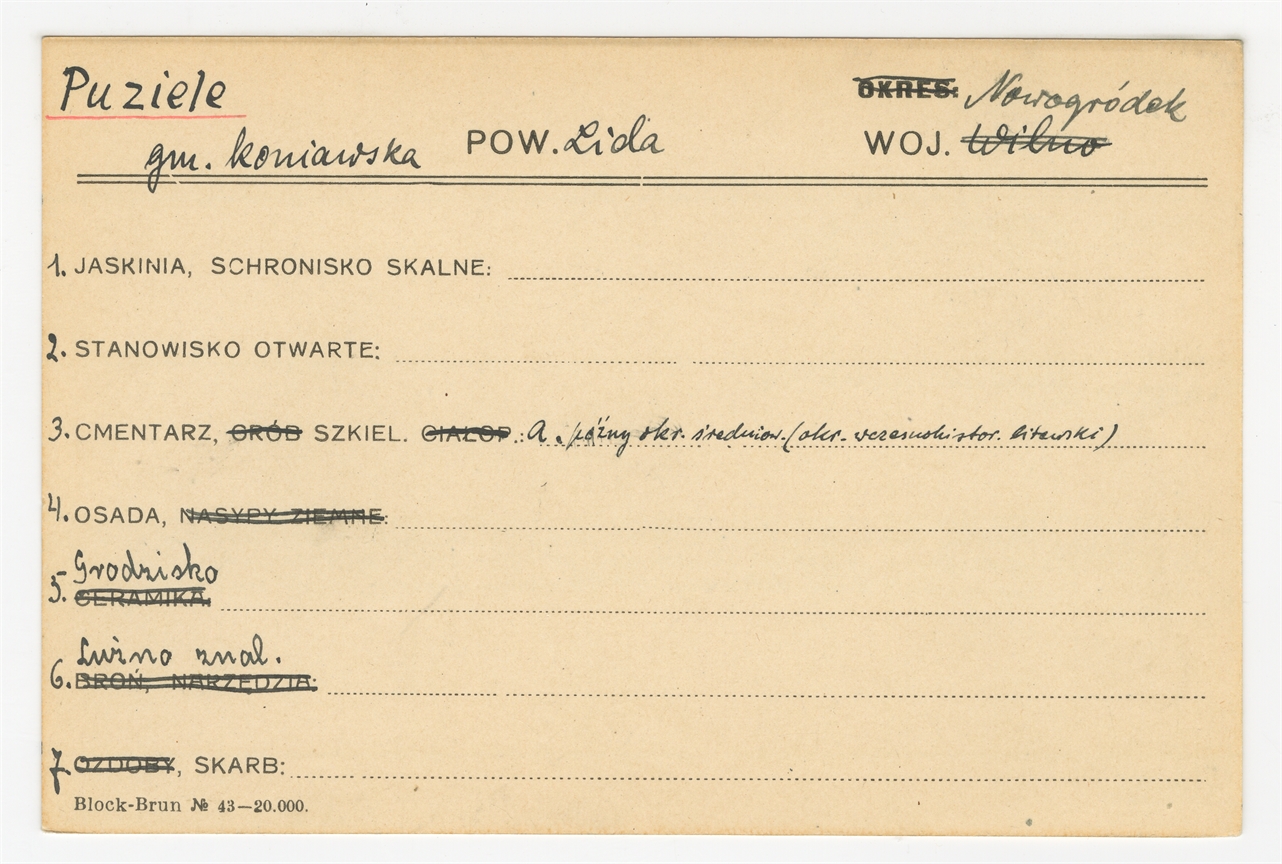 Puziele OKRES: Nowogródek
gm. koniawska POW. Lida WOJ. Wilno
1. JASKINIA, SCHRONISKO SKALNE:
2. STANOWISKO OTWARTE:
3. CMENTARZ, GRÓB SZKIEL. CIAŁOP.: A. późny okr. średniow. (okr. wczesnohistor. litewski)
4. OSADA, NASYPY ZIEMNE:
Grodzisko
5. CERAMIKA:
Luźno znal.
6. BROŃ, NARZĘDZIA:
7. OZDOBY, SKARB:
Block-Brun № 43—20.000.